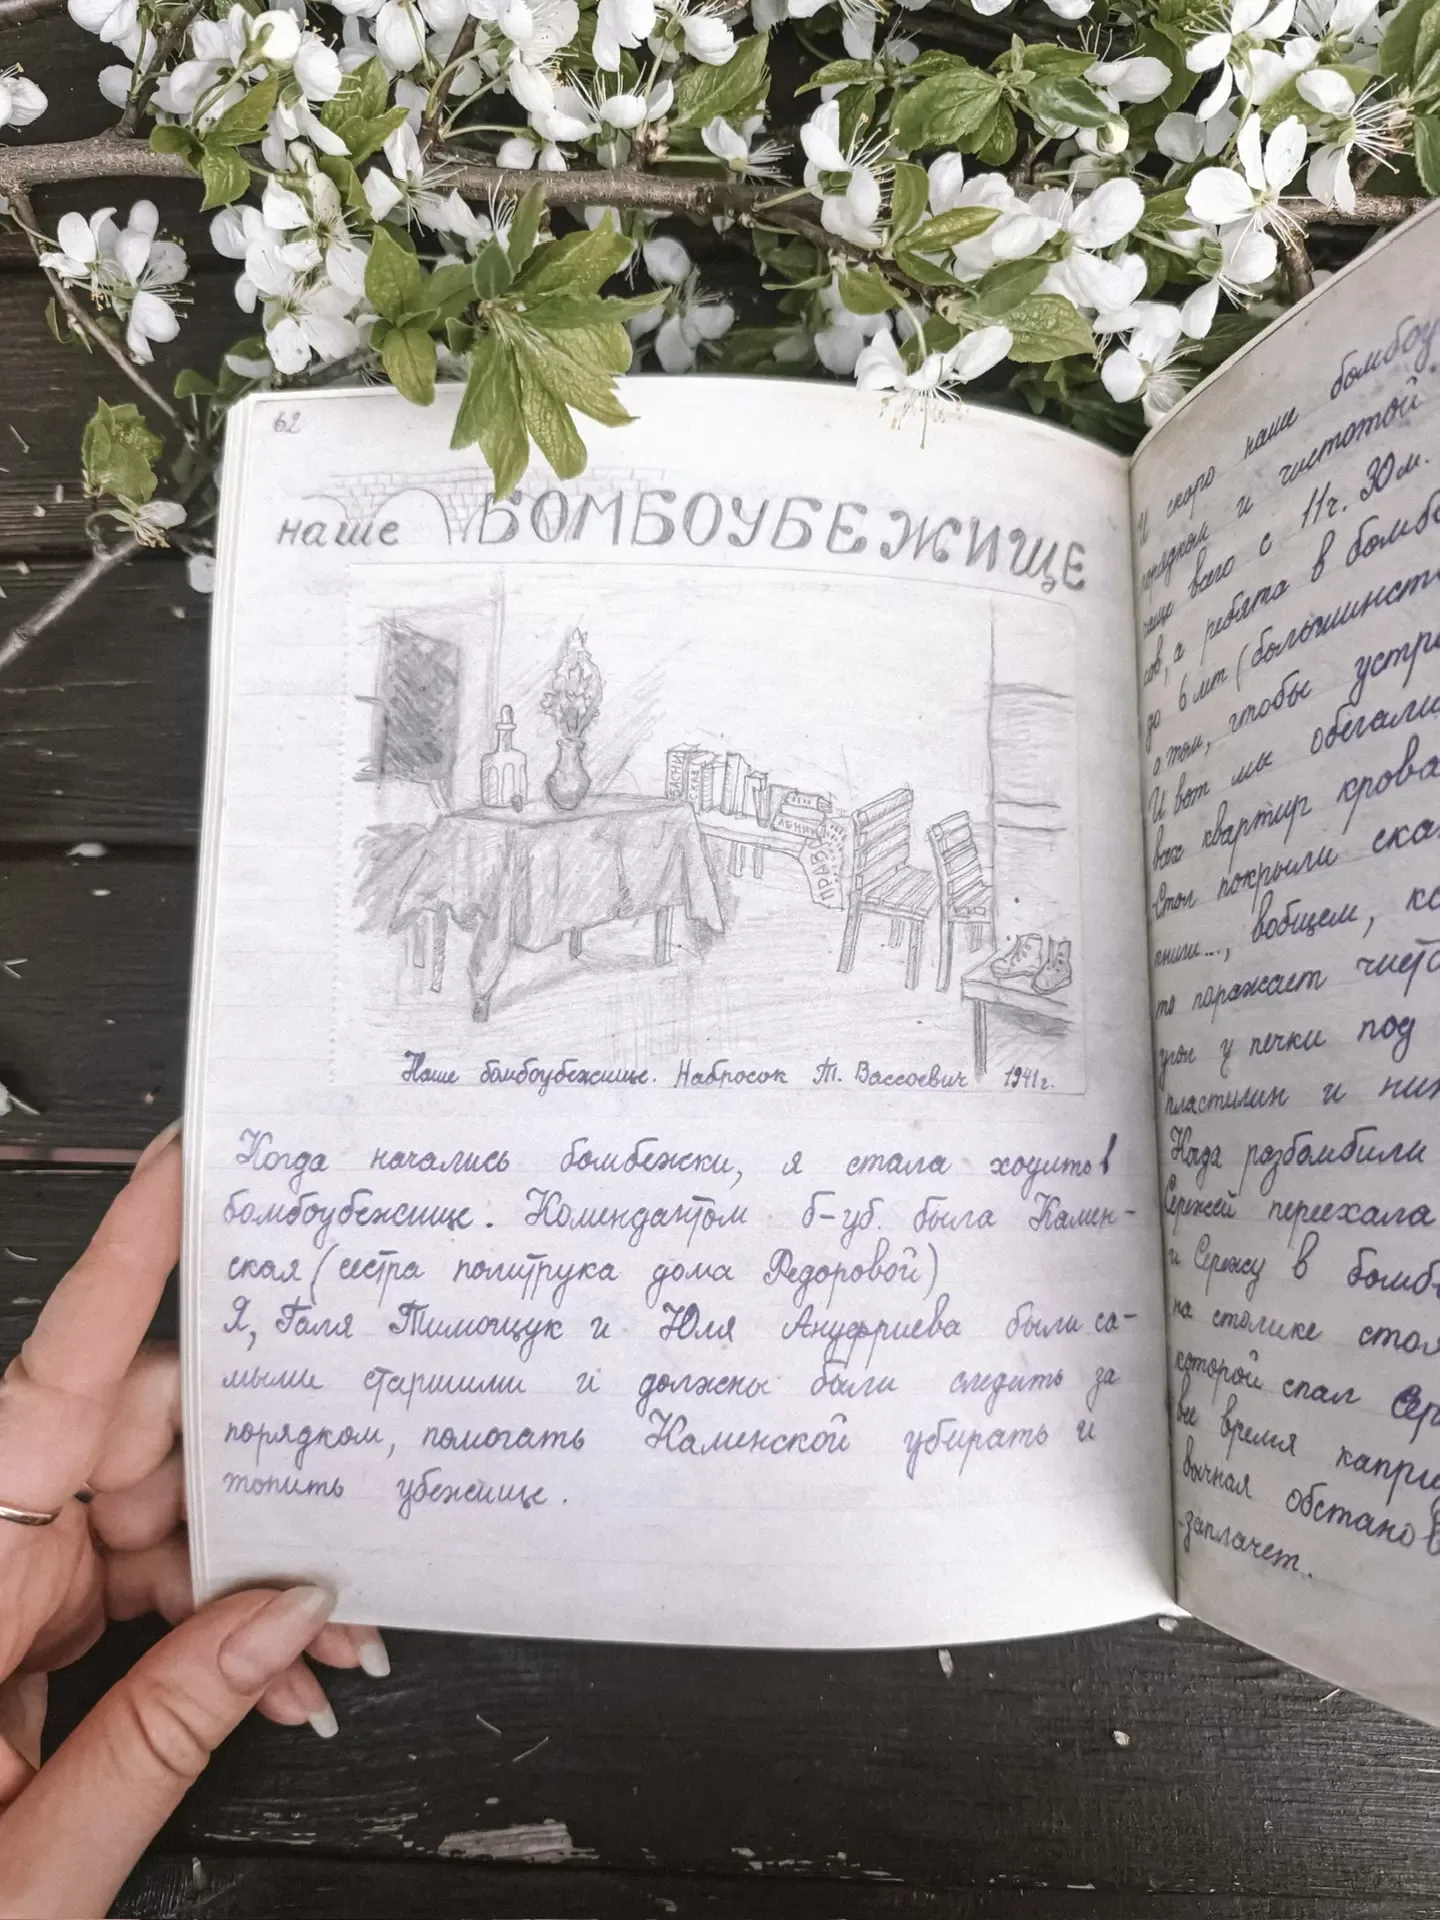 62
наше БОМБОУБЕЖИЩЕ
БАСНИ
СКАЗ
ЛЕНИН
ПРАВ
Наше бомбоубежище. Набросок Т. Вассоевич 1941г.
Когда начались бомбежки, я стала ходить в
бомбоубежище. Комендантом б-уб. была Камен-
ская (сестра политрука дома Федоровой)
Я, Галя Тимощук и Юля Ануфриева были са-
мыми старшими и должны были следить за
порядком, помогать Каменской убирать и
топить убежище.
И скоро наше бомбоу
порядком и чистотой
чаще всего с 11ч. 30м.
сов, а ребята в бомбо
до 6 лет (большинст
о том, чтобы устр
И вот мы обегали
всех квартир крова
Стол покрыли ска
книги..., вобщем, ко
то поражает чист
угол у печки под
пластилин и ни
Когда разбомбили
Сережей переехала
и Сережу в бомб
на столике стоя
которой спал Сер
все время капри
вычная обстанов
заплачет.